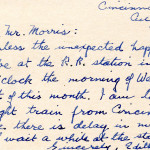 Cincinn
Mr. Morris:
less the unexpected hap
be at the R.R. station i
o'clock the morning of We
of this month. I am l
ght train from Cincin
there is delay in
wait a while at the sta
Sincerely, Edi